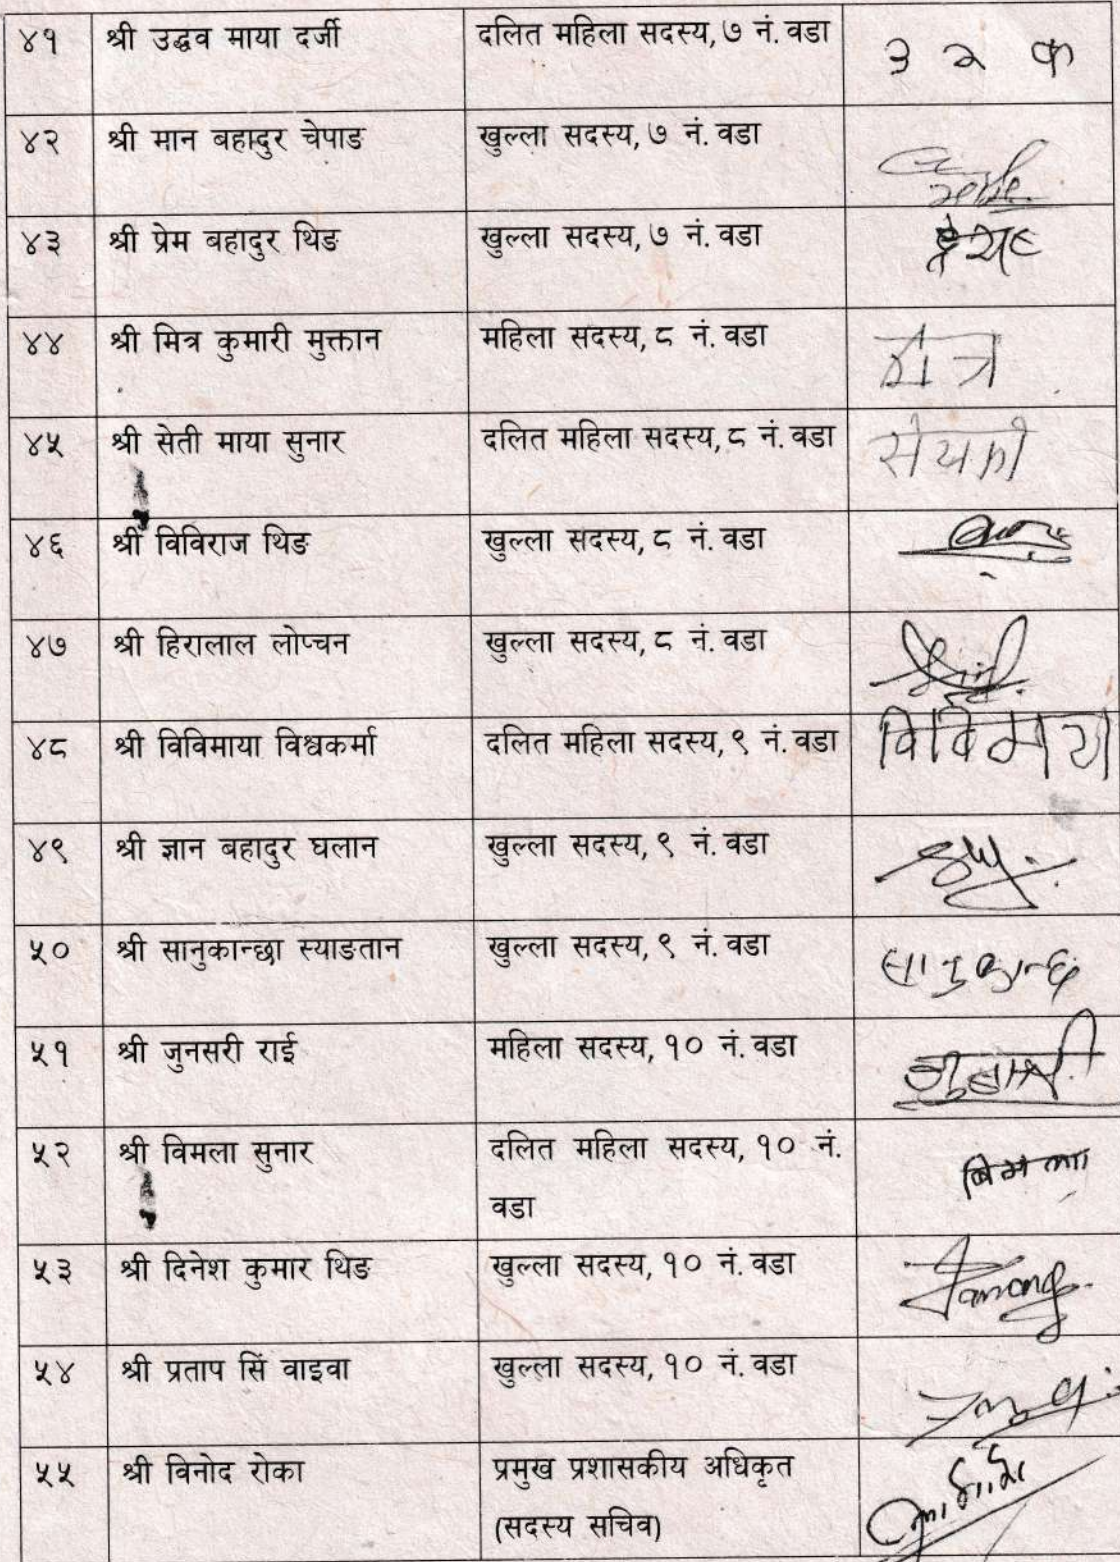 ४१ श्री उद्धव माया दर्जी दलित महिला सदस्य, ७ नं. वडा
४२ श्री मान बहादुर चेपाङ खुल्ला सदस्य, ७ नं. वडा
४३ श्री प्रेम बहादुर थिङ खुल्ला सदस्य, ७ नं. वडा
४४ श्री मित्र कुमारी मुक्तान महिला सदस्य, ८ नं. वडा
४५ श्री सेती माया सुनार दलित महिला सदस्य, ८ नं. वडा
४६ श्री विविराज थिङ खुल्ला सदस्य, ८ नं. वडा
४७ श्री हिरालाल लोप्चन खुल्ला सदस्य, ८ नं. वडा
४८ श्री विविमाया विश्वकर्मा दलित महिला सदस्य, ९ नं. वडा
४९ श्री ज्ञान बहादुर घलान खुल्ला सदस्य, ९ नं. वडा
५० श्री सानुकान्छा स्याङतान खुल्ला सदस्य, ९ नं. वडा
५१ श्री जुनसरी राई महिला सदस्य, १० नं. वडा
५२ श्री विमला सुनार दलित महिला सदस्य, १० नं. बिमला
वडा
५३ श्री दिनेश कुमार थिङ खुल्ला सदस्य, १० नं. वडा
५४ श्री प्रताप सिं वाइवा खुल्ला सदस्य, १० नं. वडा
५५ श्री विनोद रोका प्रमुख प्रशासकीय अधिकृत
(सदस्य सचिव)